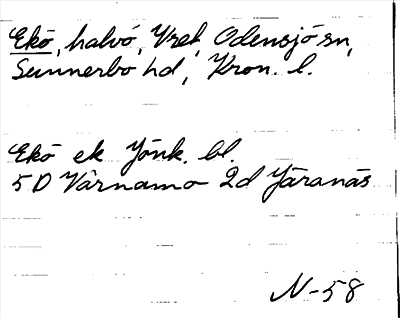 Ekö, halvö, Vret, Odensjö sn,
Sunnerbo hd, Kron. l.
Ekö ek Jönk. bl.
5 D Värnamo 2d Järanäs
N-58